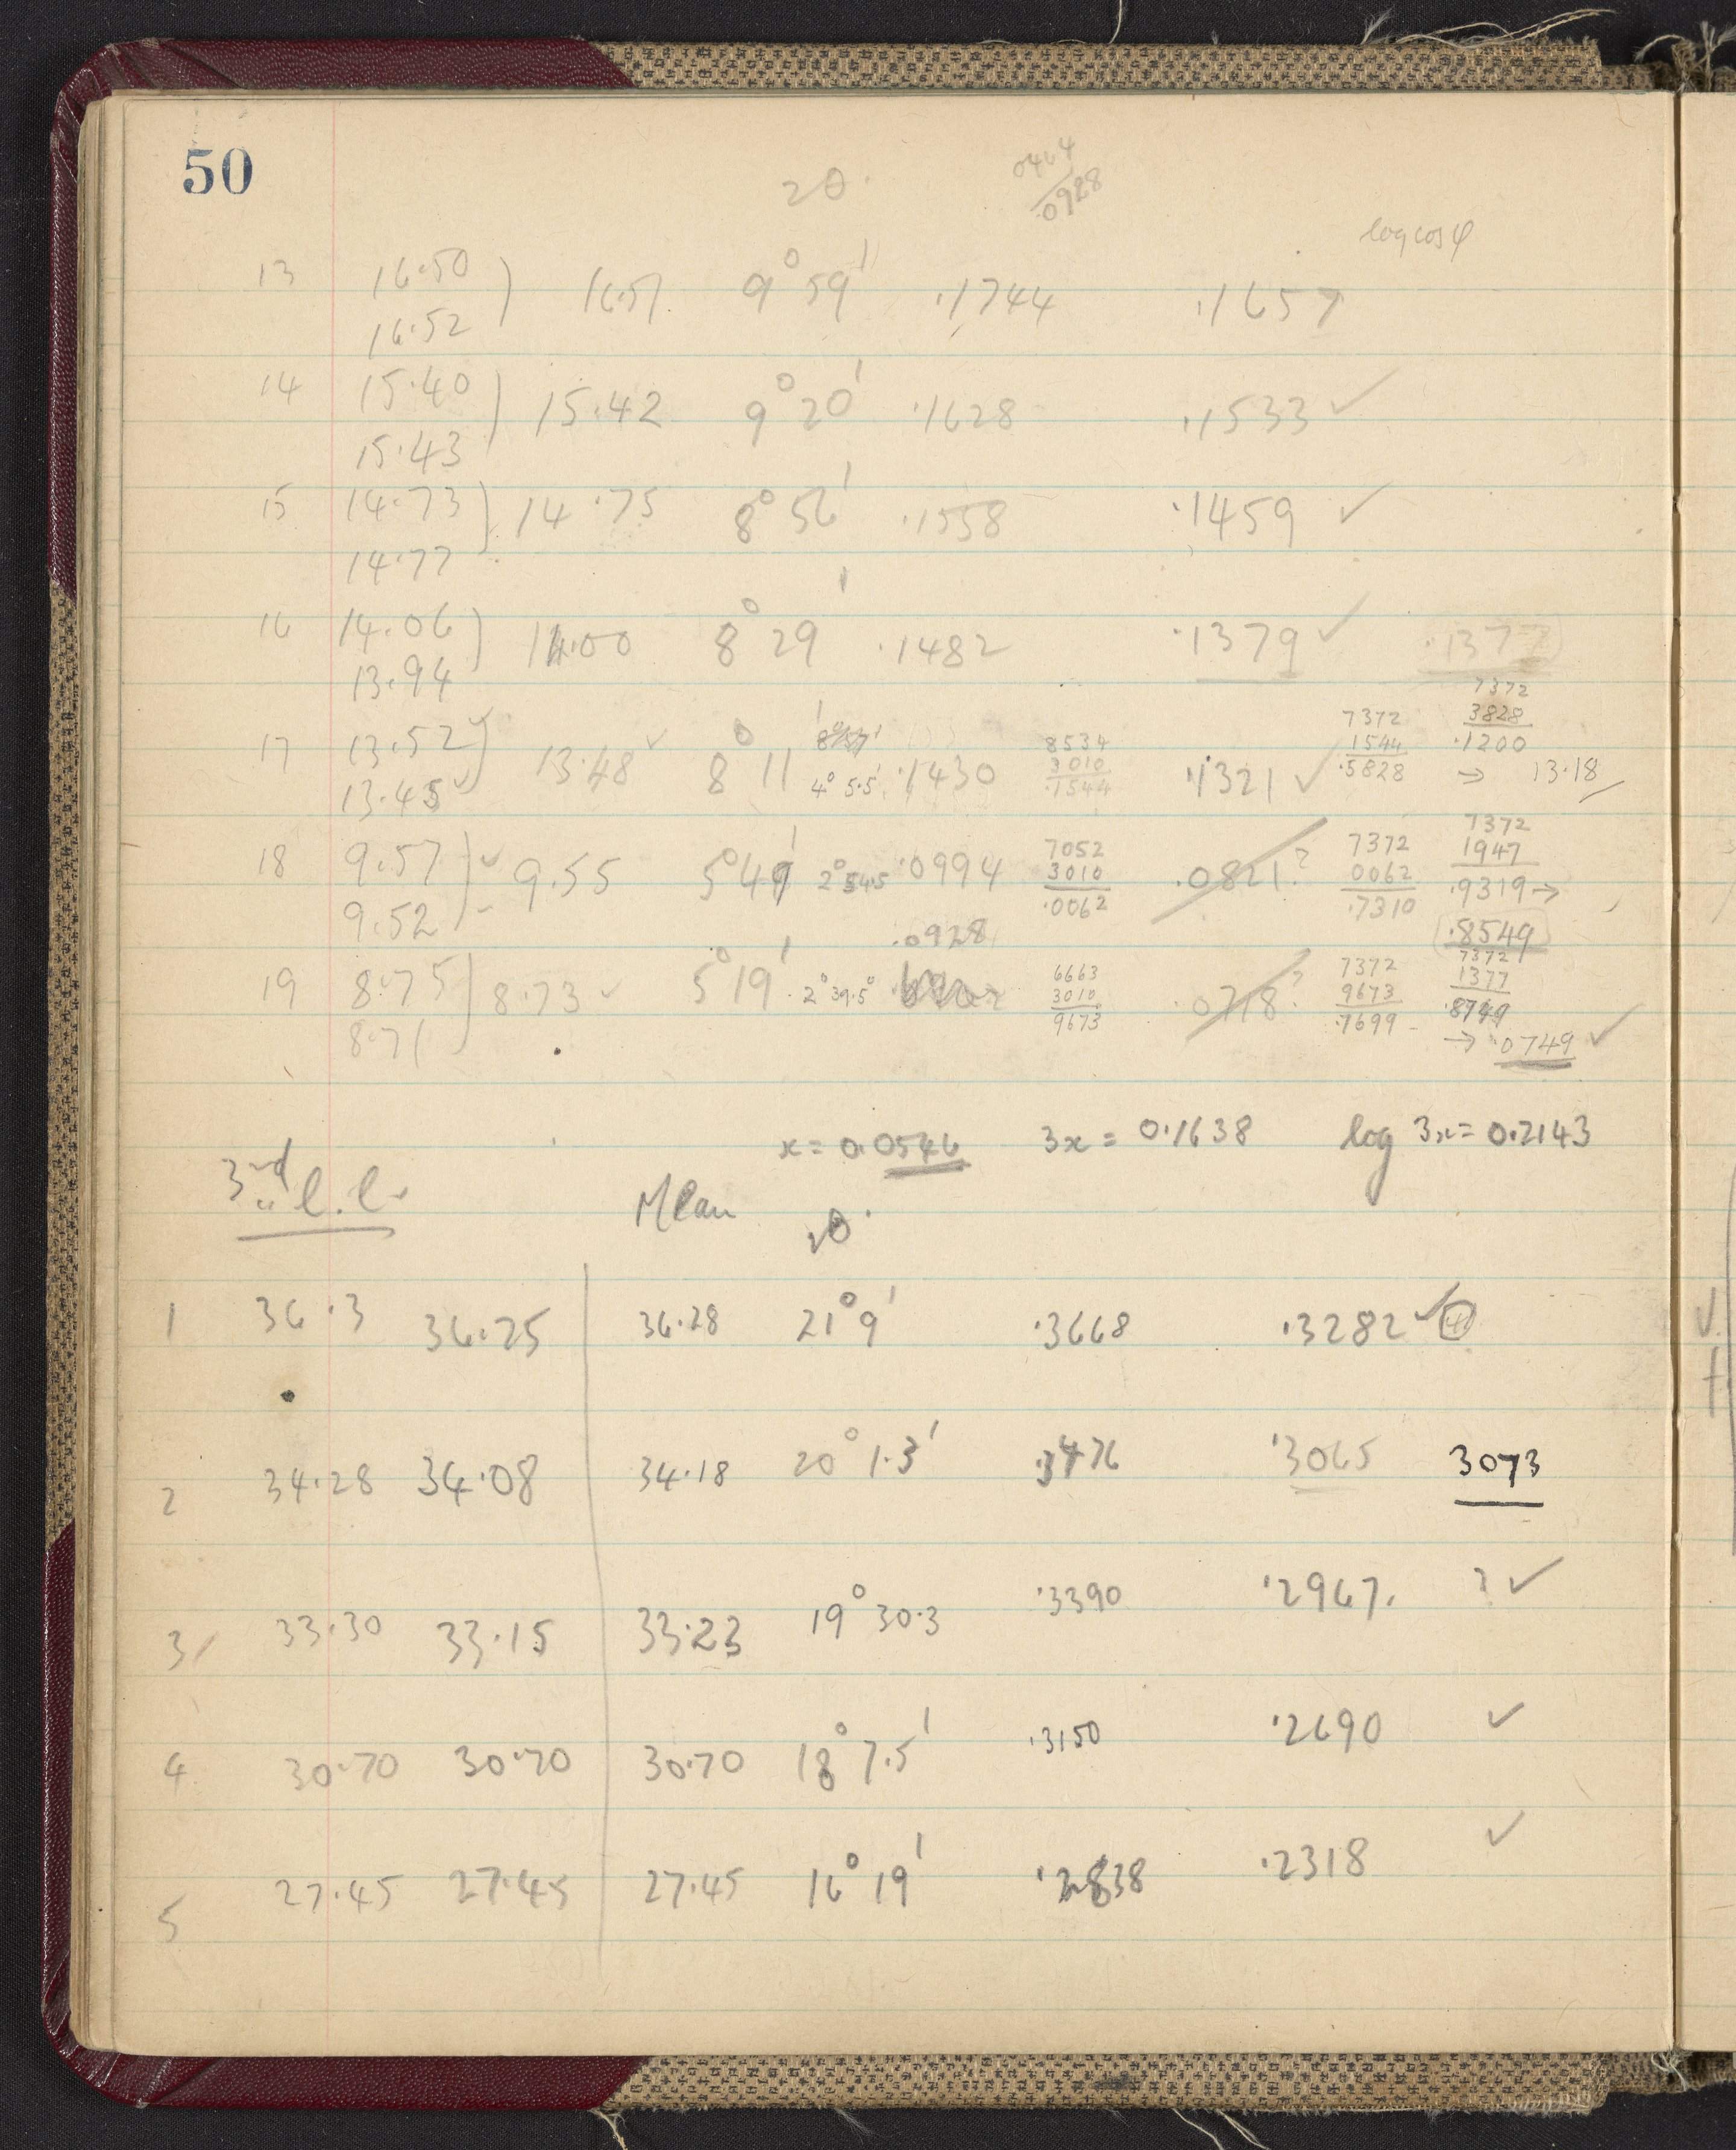 50
2θ
0464
.0928
log cos φ
13 16.50 ) 16.51 9° 59' .1744 .1657
16.52
14 15.40 ) 15.42 9° 20' .1628 .1533 ✓
15.43
15 14.73 ) 14.75 8° 56' .1558 .1459 ✓
14.77
16 14.06 ) 14.00 8° 29' .1482 .1379 ✓ .1377
13.94
17 13.52 ) 13.48 ✓ 8° 11' 4° 5.5' .1430 .1321 ✓
13.45
8534
3010
.1544
7372
1544
.5828
7372
3828
.1200
→ 13.18
18 9.57 ) ✓ 9.55 5° 49' 2° 54.5 .0994 .0821?
9.52
7052
3010
.0062
7372
0062
.7310
7372
1947
.9319 →
.8549
.0928
19 8.75 ) 8.73 ✓ 5° 19' 2° 39.5° .0718?
8.71
6663
3010
9673
7372
9673
.7699
7372
1377
.8749
→ .0749 ✓
x = 0.0546 3x = 0.1638 log 3x = 0.2143
3rd l.l.
Mean 2θ
1 36.3 36.25 36.28 21° 9' .3668 .3282 ✓
2 34.28 34.08 34.18 20° 1.3' .3476 .3065 3073
3 33.30 33.15 33.23 19° 30.3 .3390 .2967. ? ✓
4 30.70 30.70 30.70 18° 7.5' .3150 .2690 ✓
5 27.45 27.45 27.45 16° 19' .2838 .2318 ✓